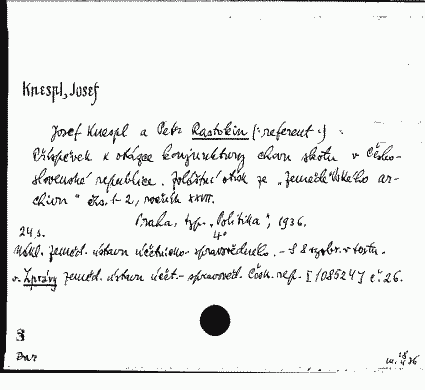 Knespl, Josef
Josef Knespl a Petr Rastokin (: referent :) :
Příspěvek k otázce konjunktury chovu skotu v Česko-
slovenské republice. Zvláštní otisk ze "Zemědělského ar-
chivu" čís. 1-2, ročník XXVII.
Praha, typ. "Politika", 1936.
24 s. 4°
Nákl. Zeměd. ústavu účetnicko-spravovědného. - S 8 vyobr. v textu.
v. Zprávy zeměd. ústavu účet.-spravověd. Česk. rep. [108524] č. 26.
3
Bar